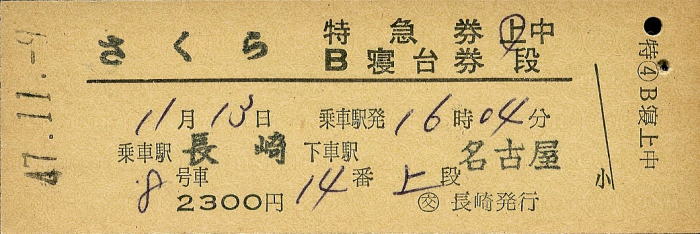 さくら 特急券 B寝台券 上中段
11月13日 乗車駅発 16時04分
乗車駅 長崎 下車駅 名古屋
8号車 14番 上段
2300円 交 長崎発行
小
47.11.-9
特④B寝上中